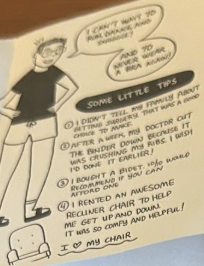 I CAN'T WAIT TO
RUN, DANCE, AND
AND TO
NEVER WEAR
A BRA AGAIN!
SOME LITTLE TIPS
① I DIDN'T TELL MY FAMILY ABOUT
GETTING SURGERY. THAT WAS A GOOD
CHOICE TO MAKE.
② AFTER A WEEK, MY DOCTOR CUT
THE BINDER DOWN BECAUSE IT
WAS CRUSHING MY RIBS. I WISH
I'D DONE IT EARLIER!
③ I BOUGHT A BIDET. 10/10 WOULD
RECOMMEND IF YOU CAN
AFFORD ONE
④ I RENTED AN AWESOME
RECLINER CHAIR TO HELP
ME GET UP AND DOWN.
IT WAS SO COMFY AND HELPFUL!
I ♡ MY CHAIR